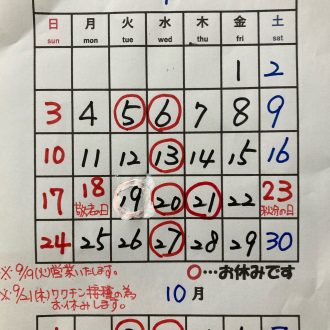 日 月 火 水 木 金 土
sun mon tue wed thu fri sat
1 2
3 4 5 6 7 8 9
10 11 12 13 14 15 16
17 18 19 20 21 22 23
敬老の日 秋分の日
24 25 26 27 28 29 30
※9/19(火)営業いたします。
○…お休みです
※9/21(木)ワクチン接種の為
お休みします。
10月
日 月 火 水 木 金 土